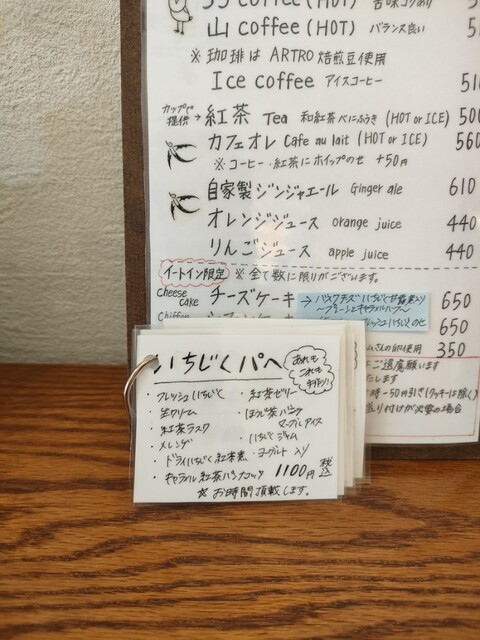 coffee (HOT) 苦味コクあり
山 coffee (HOT) バランス良い
※ 珈琲は ARTRO 焙煎豆使用
Ice coffee アイスコーヒー
カップで提供→ 紅茶 Tea 和紅茶べにふうき (HOT or ICE) 500
カフェオレ Cafe au lait (HOT or ICE) 560
※ コーヒー・紅茶にホイップのせ +50円
自家製ジンジャエール Ginger ale 610
オレンジジュース orange juice 440
りんごジュース apple juice 440
イートイン限定 ※ 全て数に限りがございます。
cheese cake チーズケーキ → 650
650
350
ご遠慮願います
たします
-50円引き(クッキーは除く)
いちじくパへ
あれもこれも手作り!
・フレッシュいちじく
・生クリーム
・紅茶ラスク
・メレンゲ
・ドライいちじく紅茶煮
・キャラメル紅茶パンナコッタ
・紅茶ゼリー
・ほうじ茶バニラヨーグルトアイス
・いちじくジャム
・ヨーグルト入り
1100円 税込
※ お時間頂戴します。